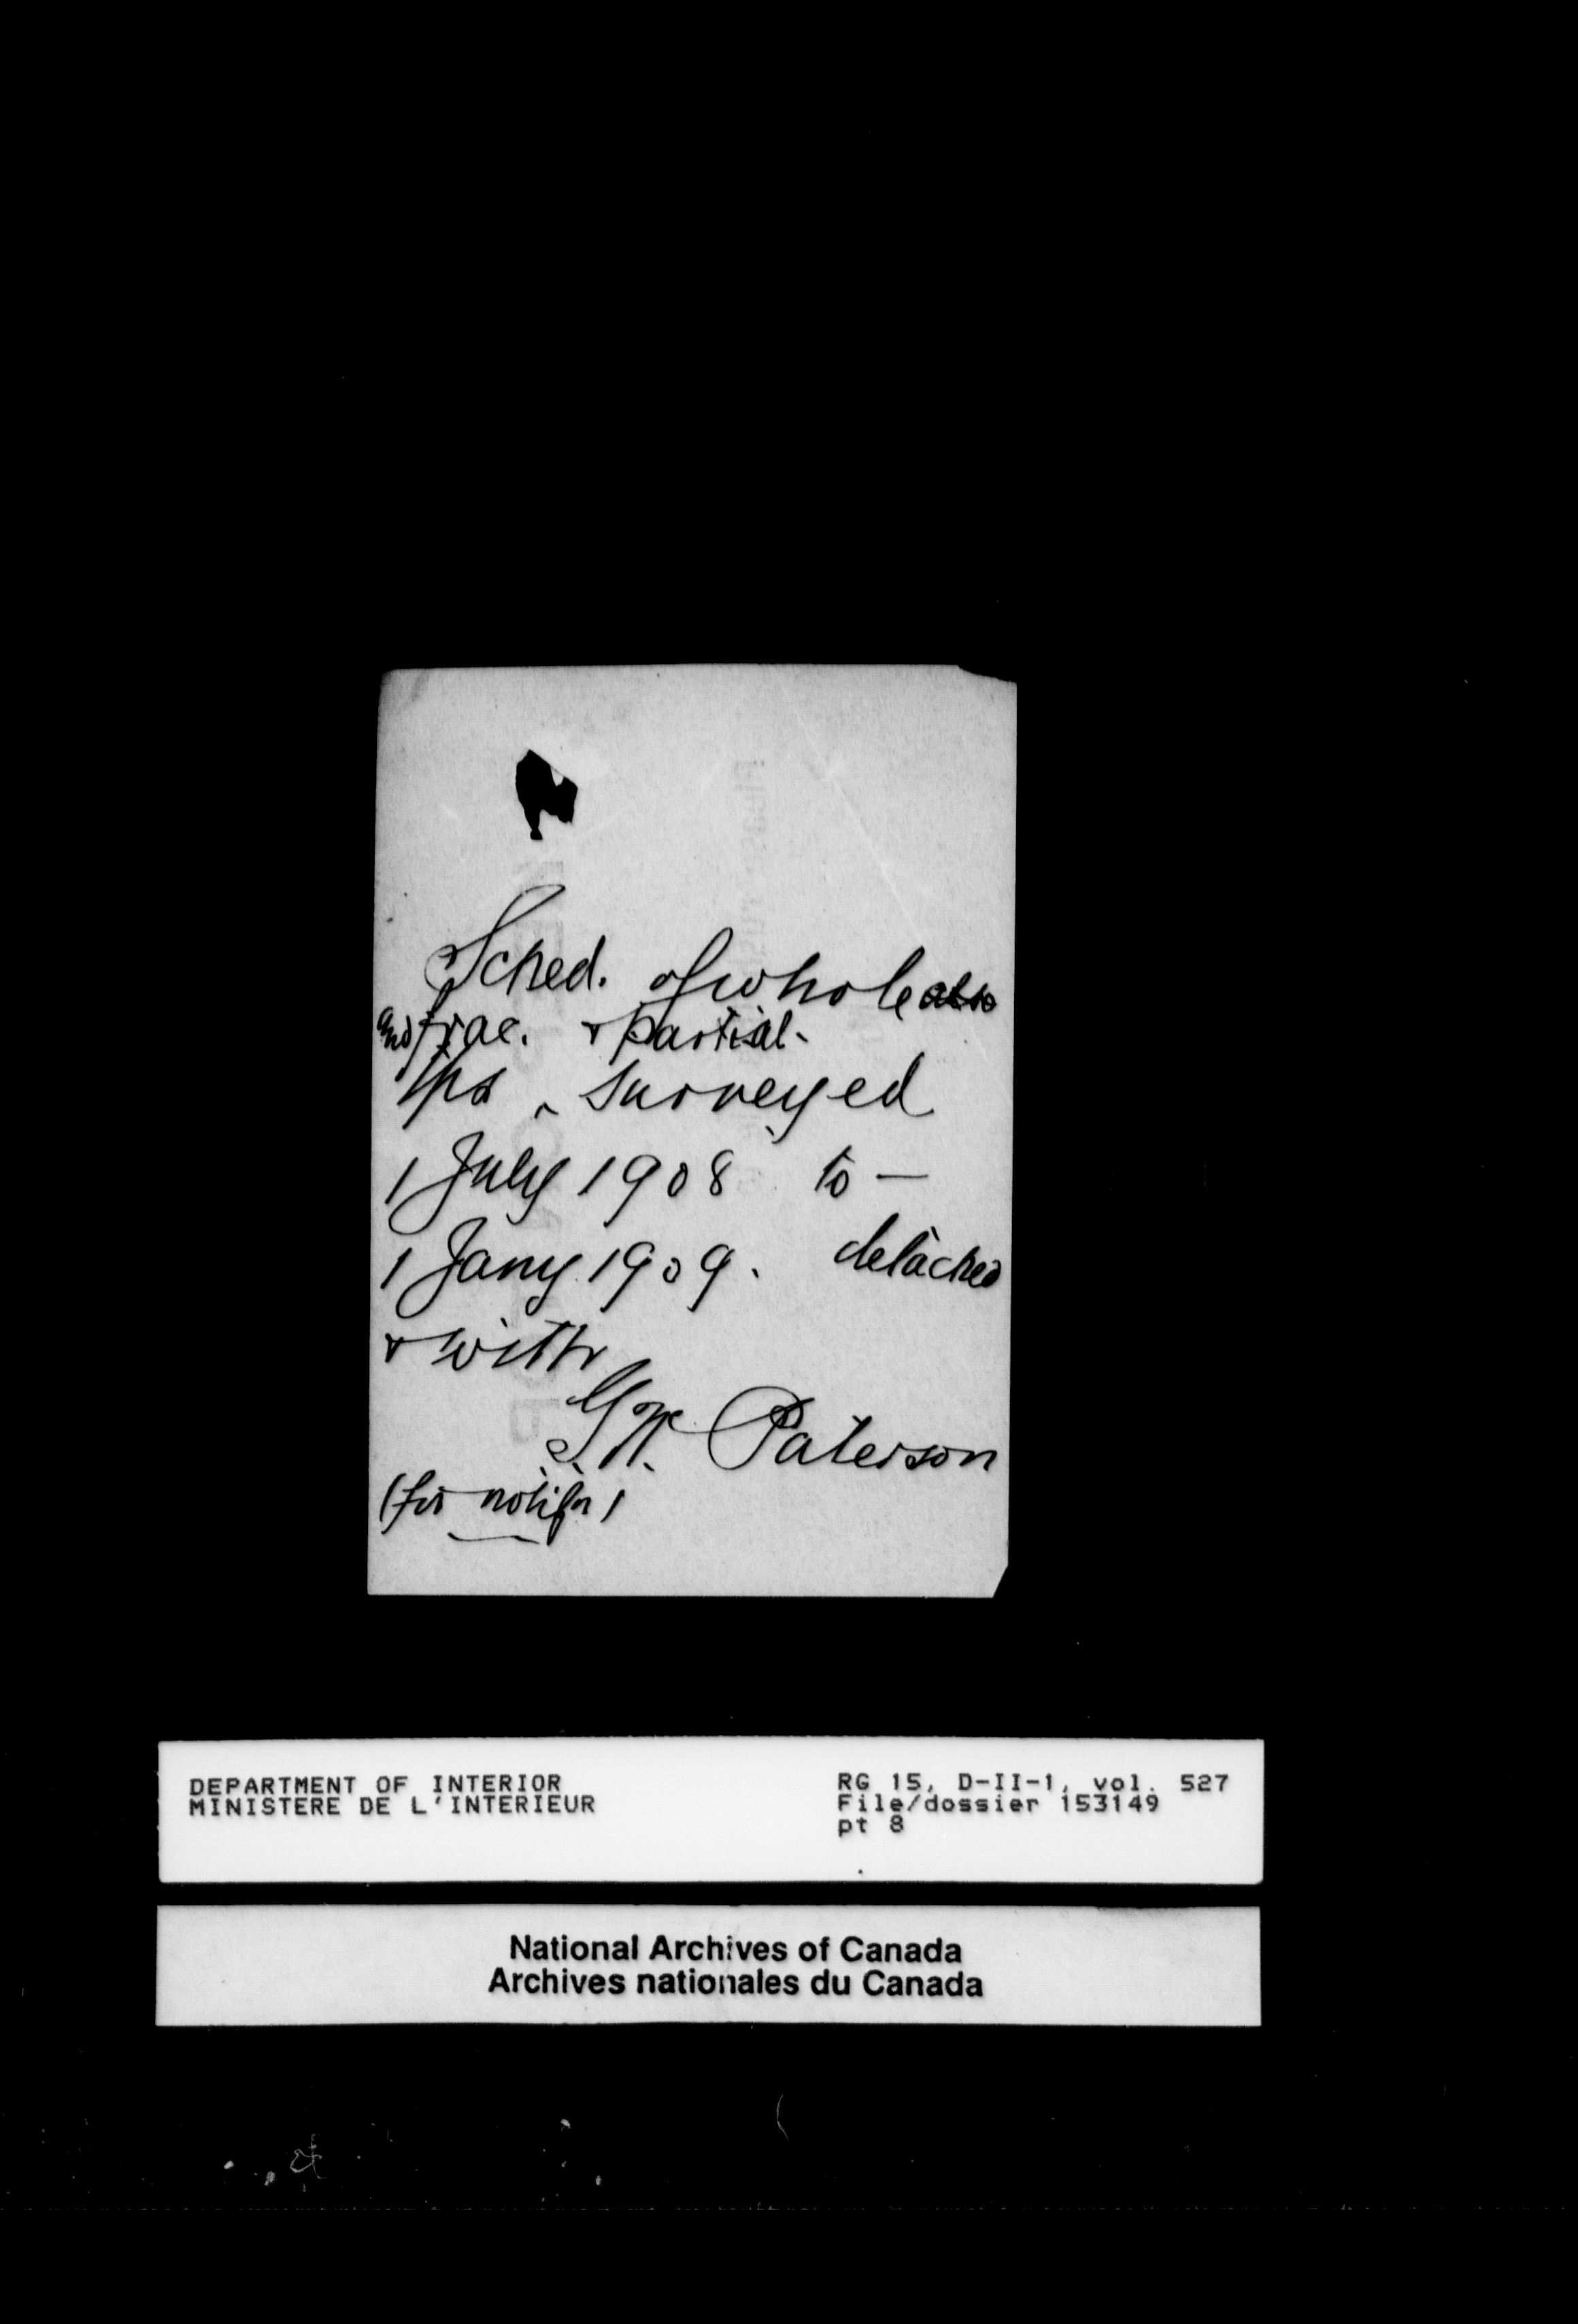 Sched. of whole also
and frac. & partial-
tps surveyed
1 July 1908 to —
1 Jany 1909. detached
& with
Paterson
(for notifn)
DEPARTMENT OF INTERIOR
MINISTERE DE L'INTERIEUR
RG 15, D-II-1, vol. 527
File/dossier 153149
pt 8
National Archives of Canada
Archives nationales du Canada